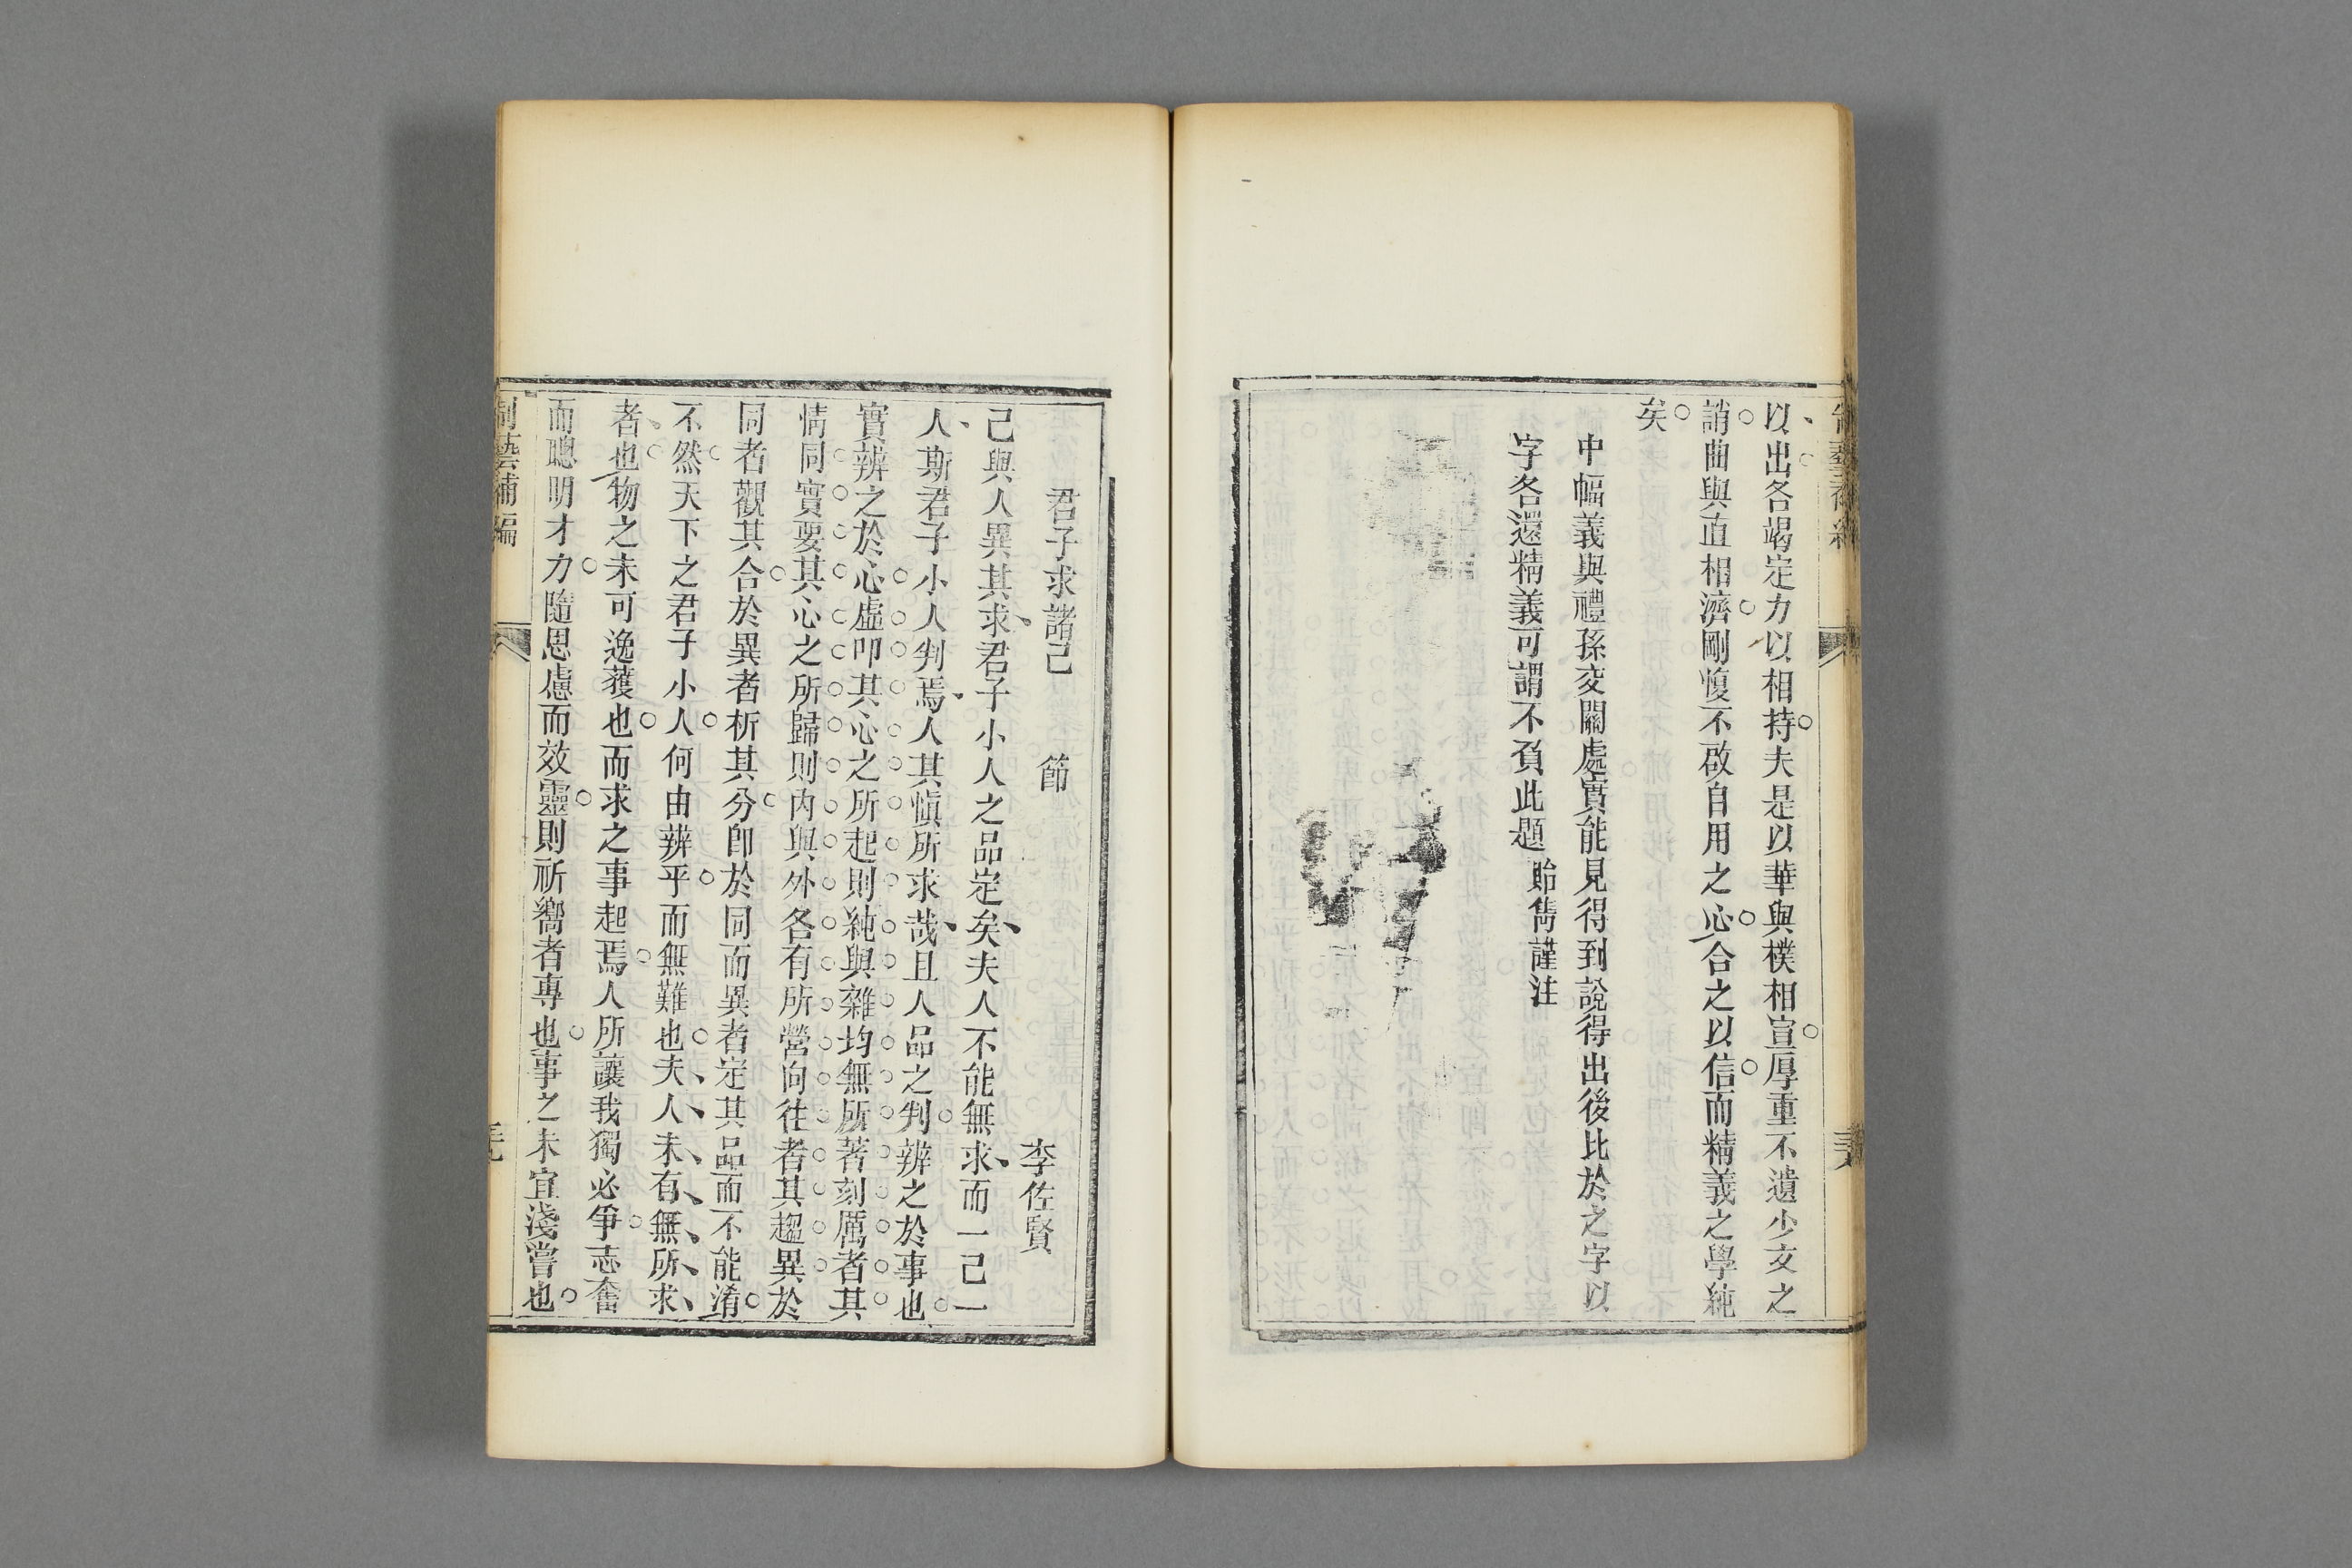 以出各竭定力以相持夫是以華與樸相宣厚重不遺少文之
誚曲與直相濟剛愎不啟自用之心合之以信而精義之學純
矣
中幅義與禮孫交關處實能見得到說得出後比於之字以
字各還精義可謂不負此題 貽雋謹注
君子求諸己 節 李佐賢
己與人異其求君子小人之品定矣夫人不能無求而一己一
人斯君子小人判焉人其慎所求哉且人品之判辨之於事也
實辨之於心虛叩其心之所起則純與雜均無所著刻厲者其
情同實要其心之所歸則內與外各有所營向往者其趨異於
同者觀其合於異者析其分卽於同而異者定其品而不能淆
不然天下之君子小人何由辨乎而無難也夫人未有無所求
者也物之未可逸獲也而求之事起焉人所讓我獨必爭志奮
而聰明才力隨思慮而效靈則祈嚮者專也事之未宜淺嘗也
制藝補編